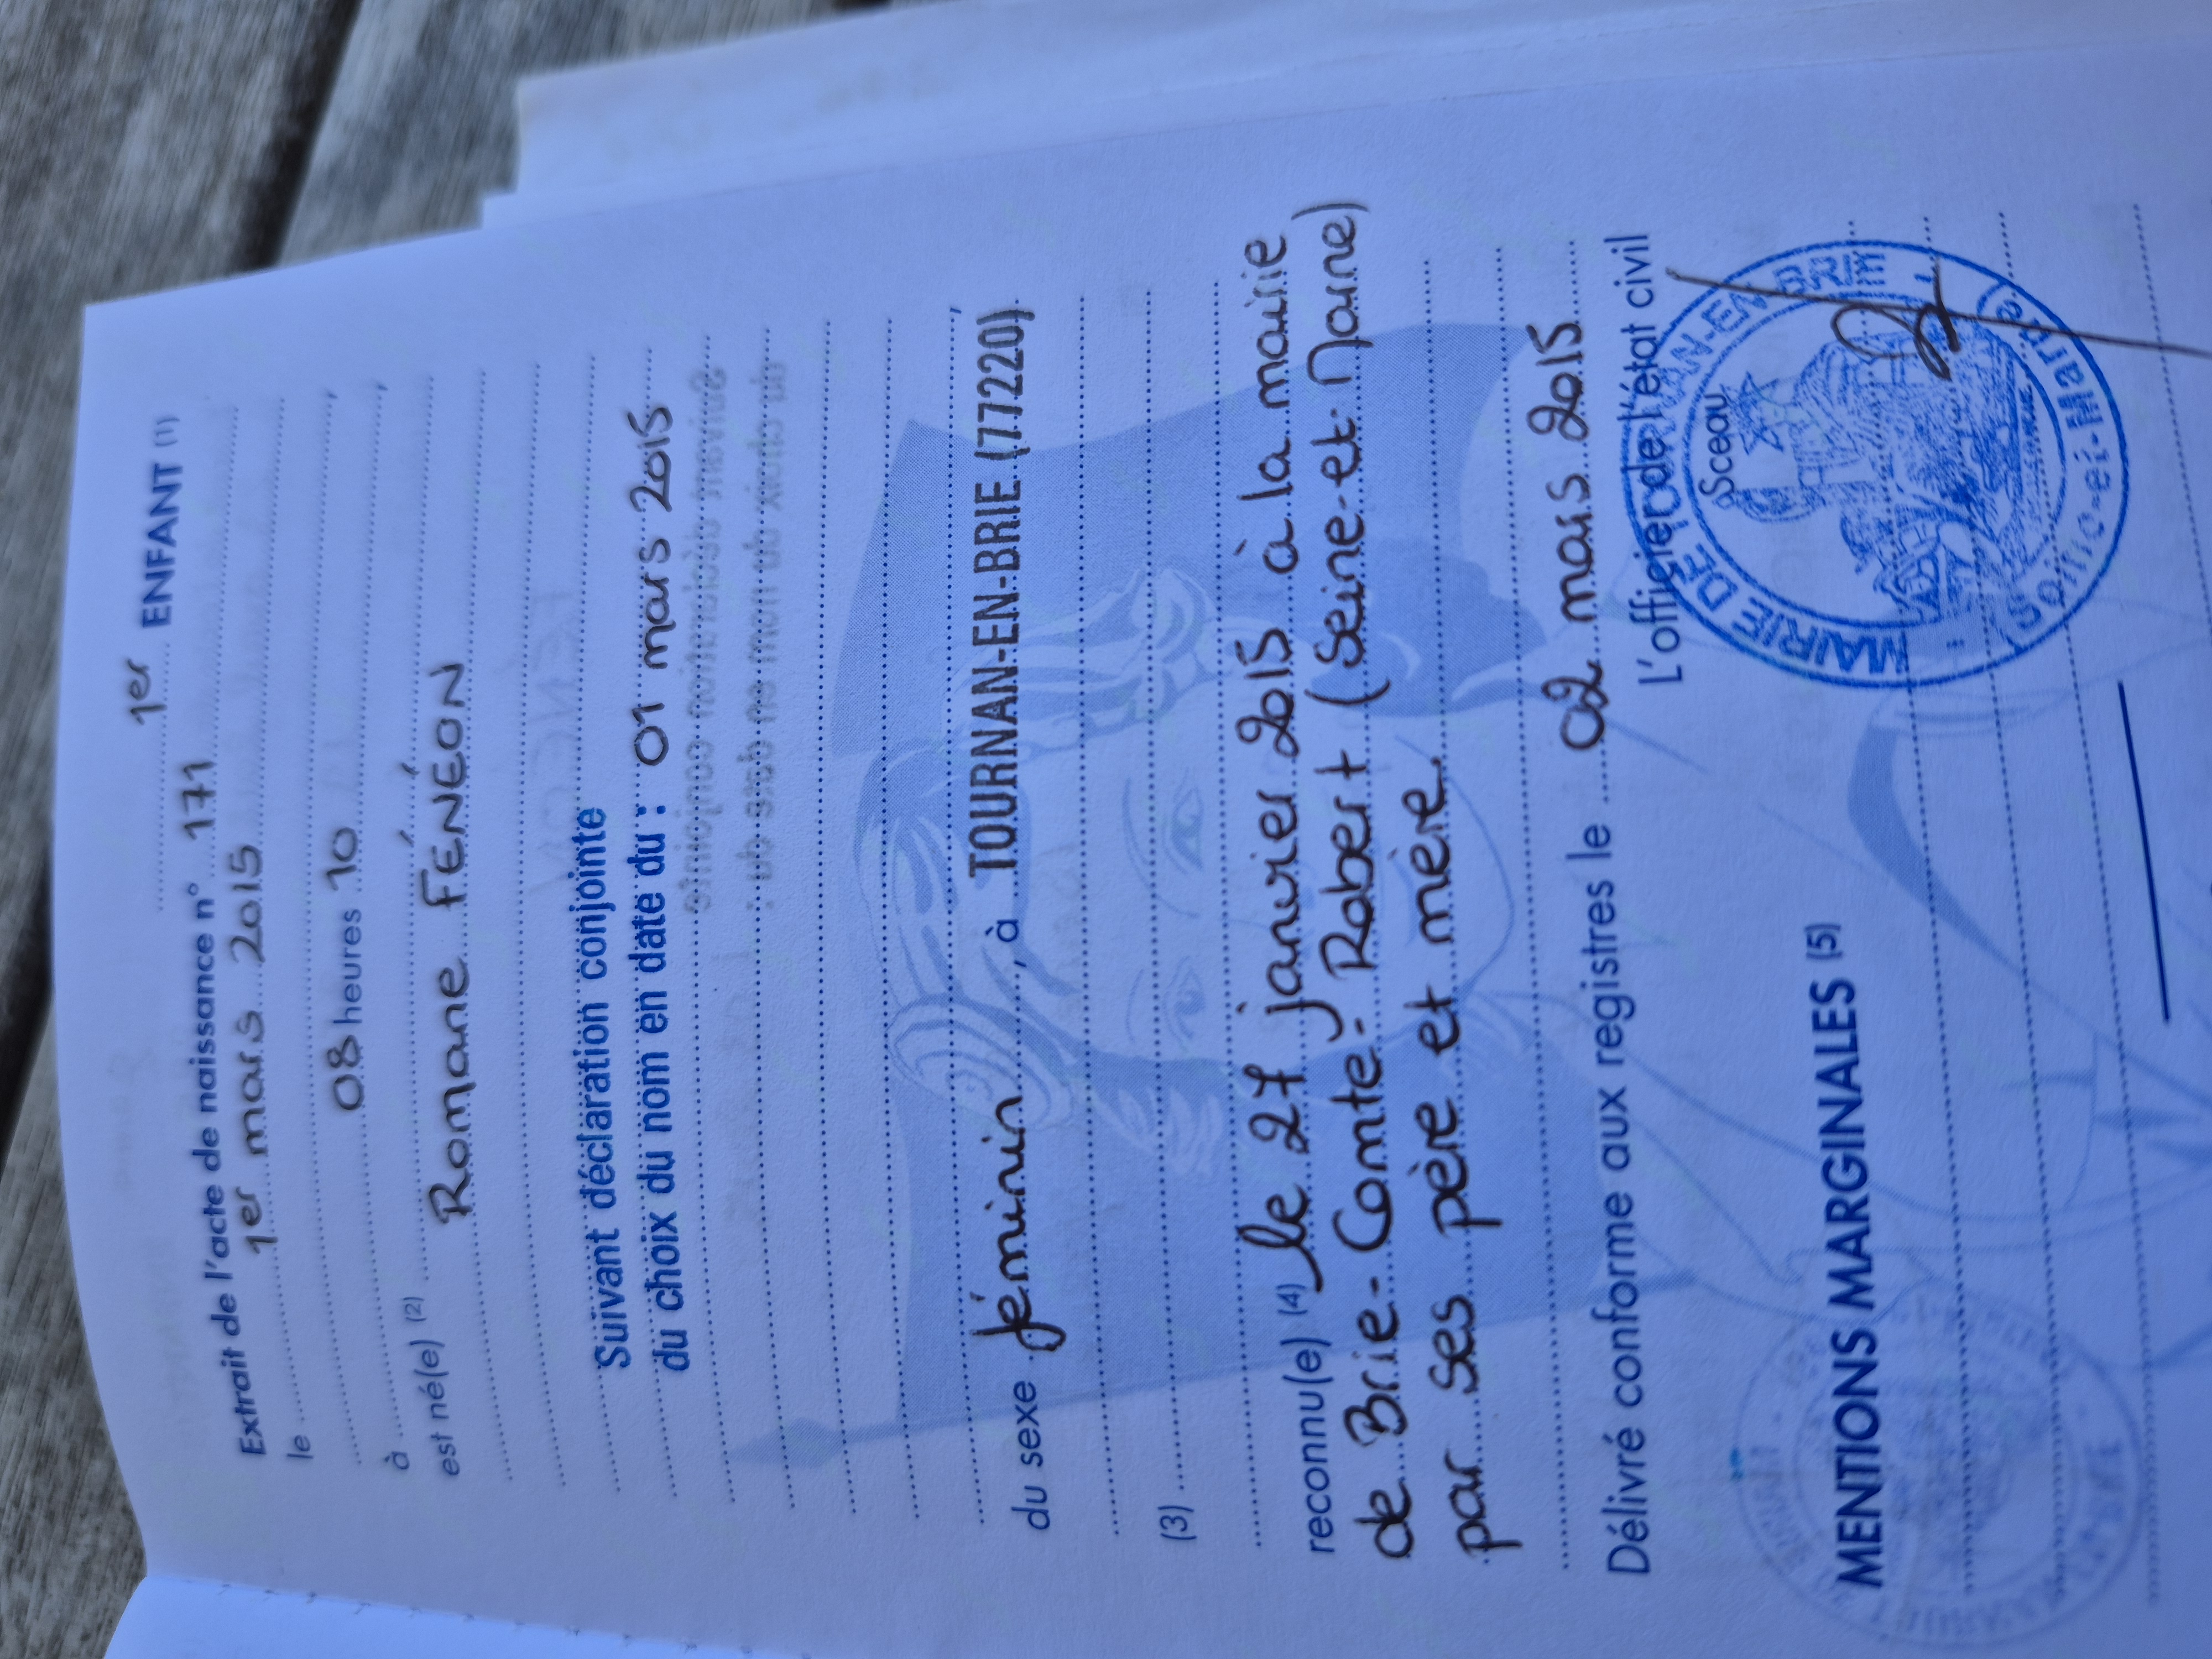 1er ENFANT (1)
Extrait de l'acte de naissance n° 171
le 1er mars 2015
08 heures 10
à
est né(e) (2)
Romane FÉNÉON
Suivant déclaration conjointe
du choix du nom en date du : 01 mars 2015
du sexe féminin, à TOURNAN-EN-BRIE (77220),
(3)
reconnu(e) (4) le 27 janvier 2015 à la mairie
de Brie-Comte-Robert (Seine-et-Marne)
par ses père et mère.
Délivré conforme aux registres le 02 mars 2015
L'officier de l'état civil
Sceau
MAIRIE DE TOURNAN-EN-BRIE
(Seine-et-Marne)
MENTIONS MARGINALES (5)